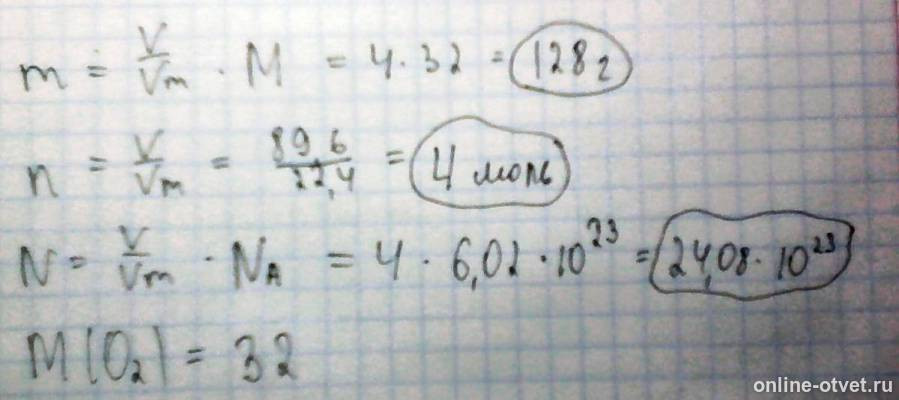 m = V/Vm · M = 4 · 32 = 128 г
n = V/Vm = 89,6/22,4 = 4 моль
N = V/Vm · NA = 4 · 6,02 · 10²³ = 24,08 · 10²³
M(O₂) = 32
online-otvet.ru